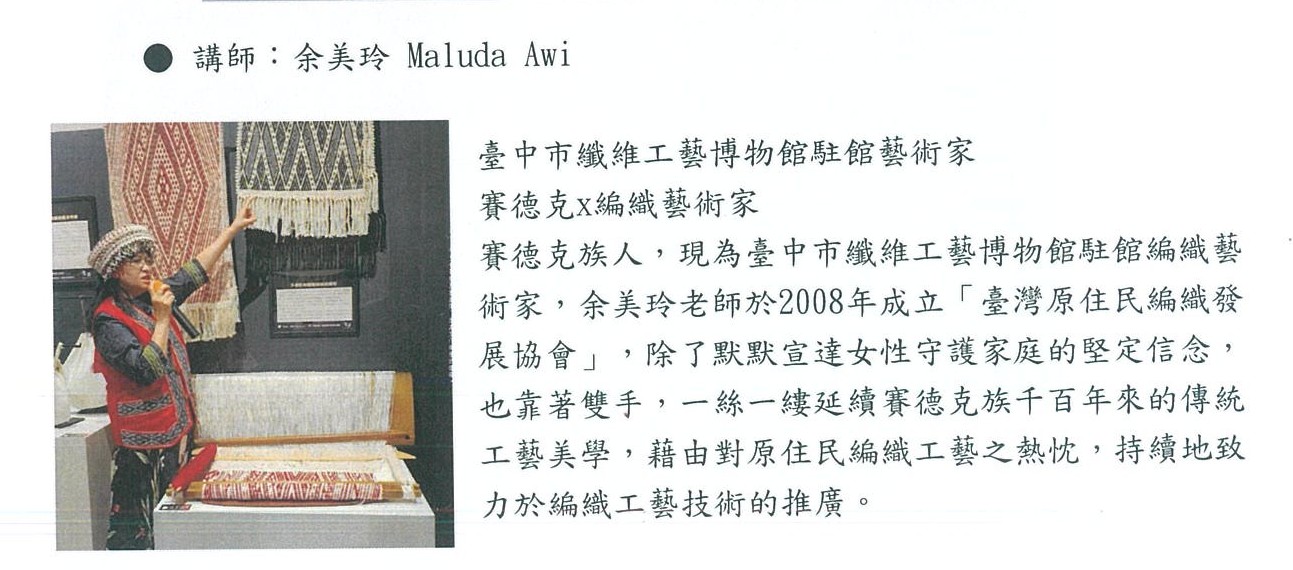 ● 講師：余美玲 Maluda Awi
臺中市纖維工藝博物館駐館藝術家
賽德克x編織藝術家
賽德克族人，現為臺中市纖維工藝博物館駐館編織藝
術家，余美玲老師於2008年成立「臺灣原住民編織發
展協會」，除了默默宣達女性守護家庭的堅定信念，
也靠著雙手，一絲一縷延續賽德克族千百年來的傳統
工藝美學，藉由對原住民編織工藝之熱忱，持續地致
力於編織工藝技術的推廣。